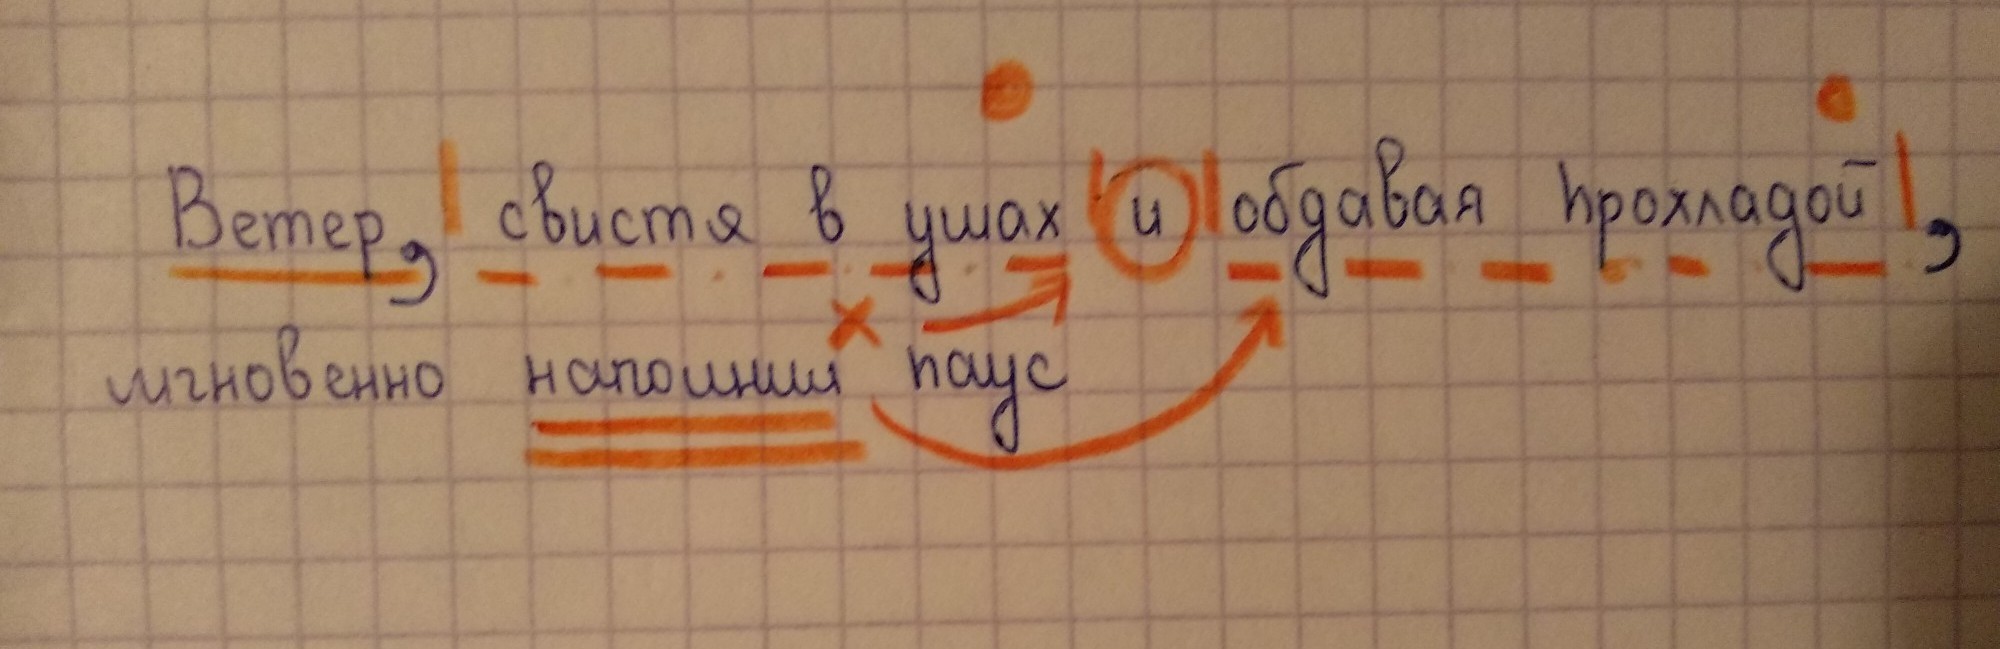 Ветер, свистя в ушах и обдавая прохладой,
мгновенно напомнил паус